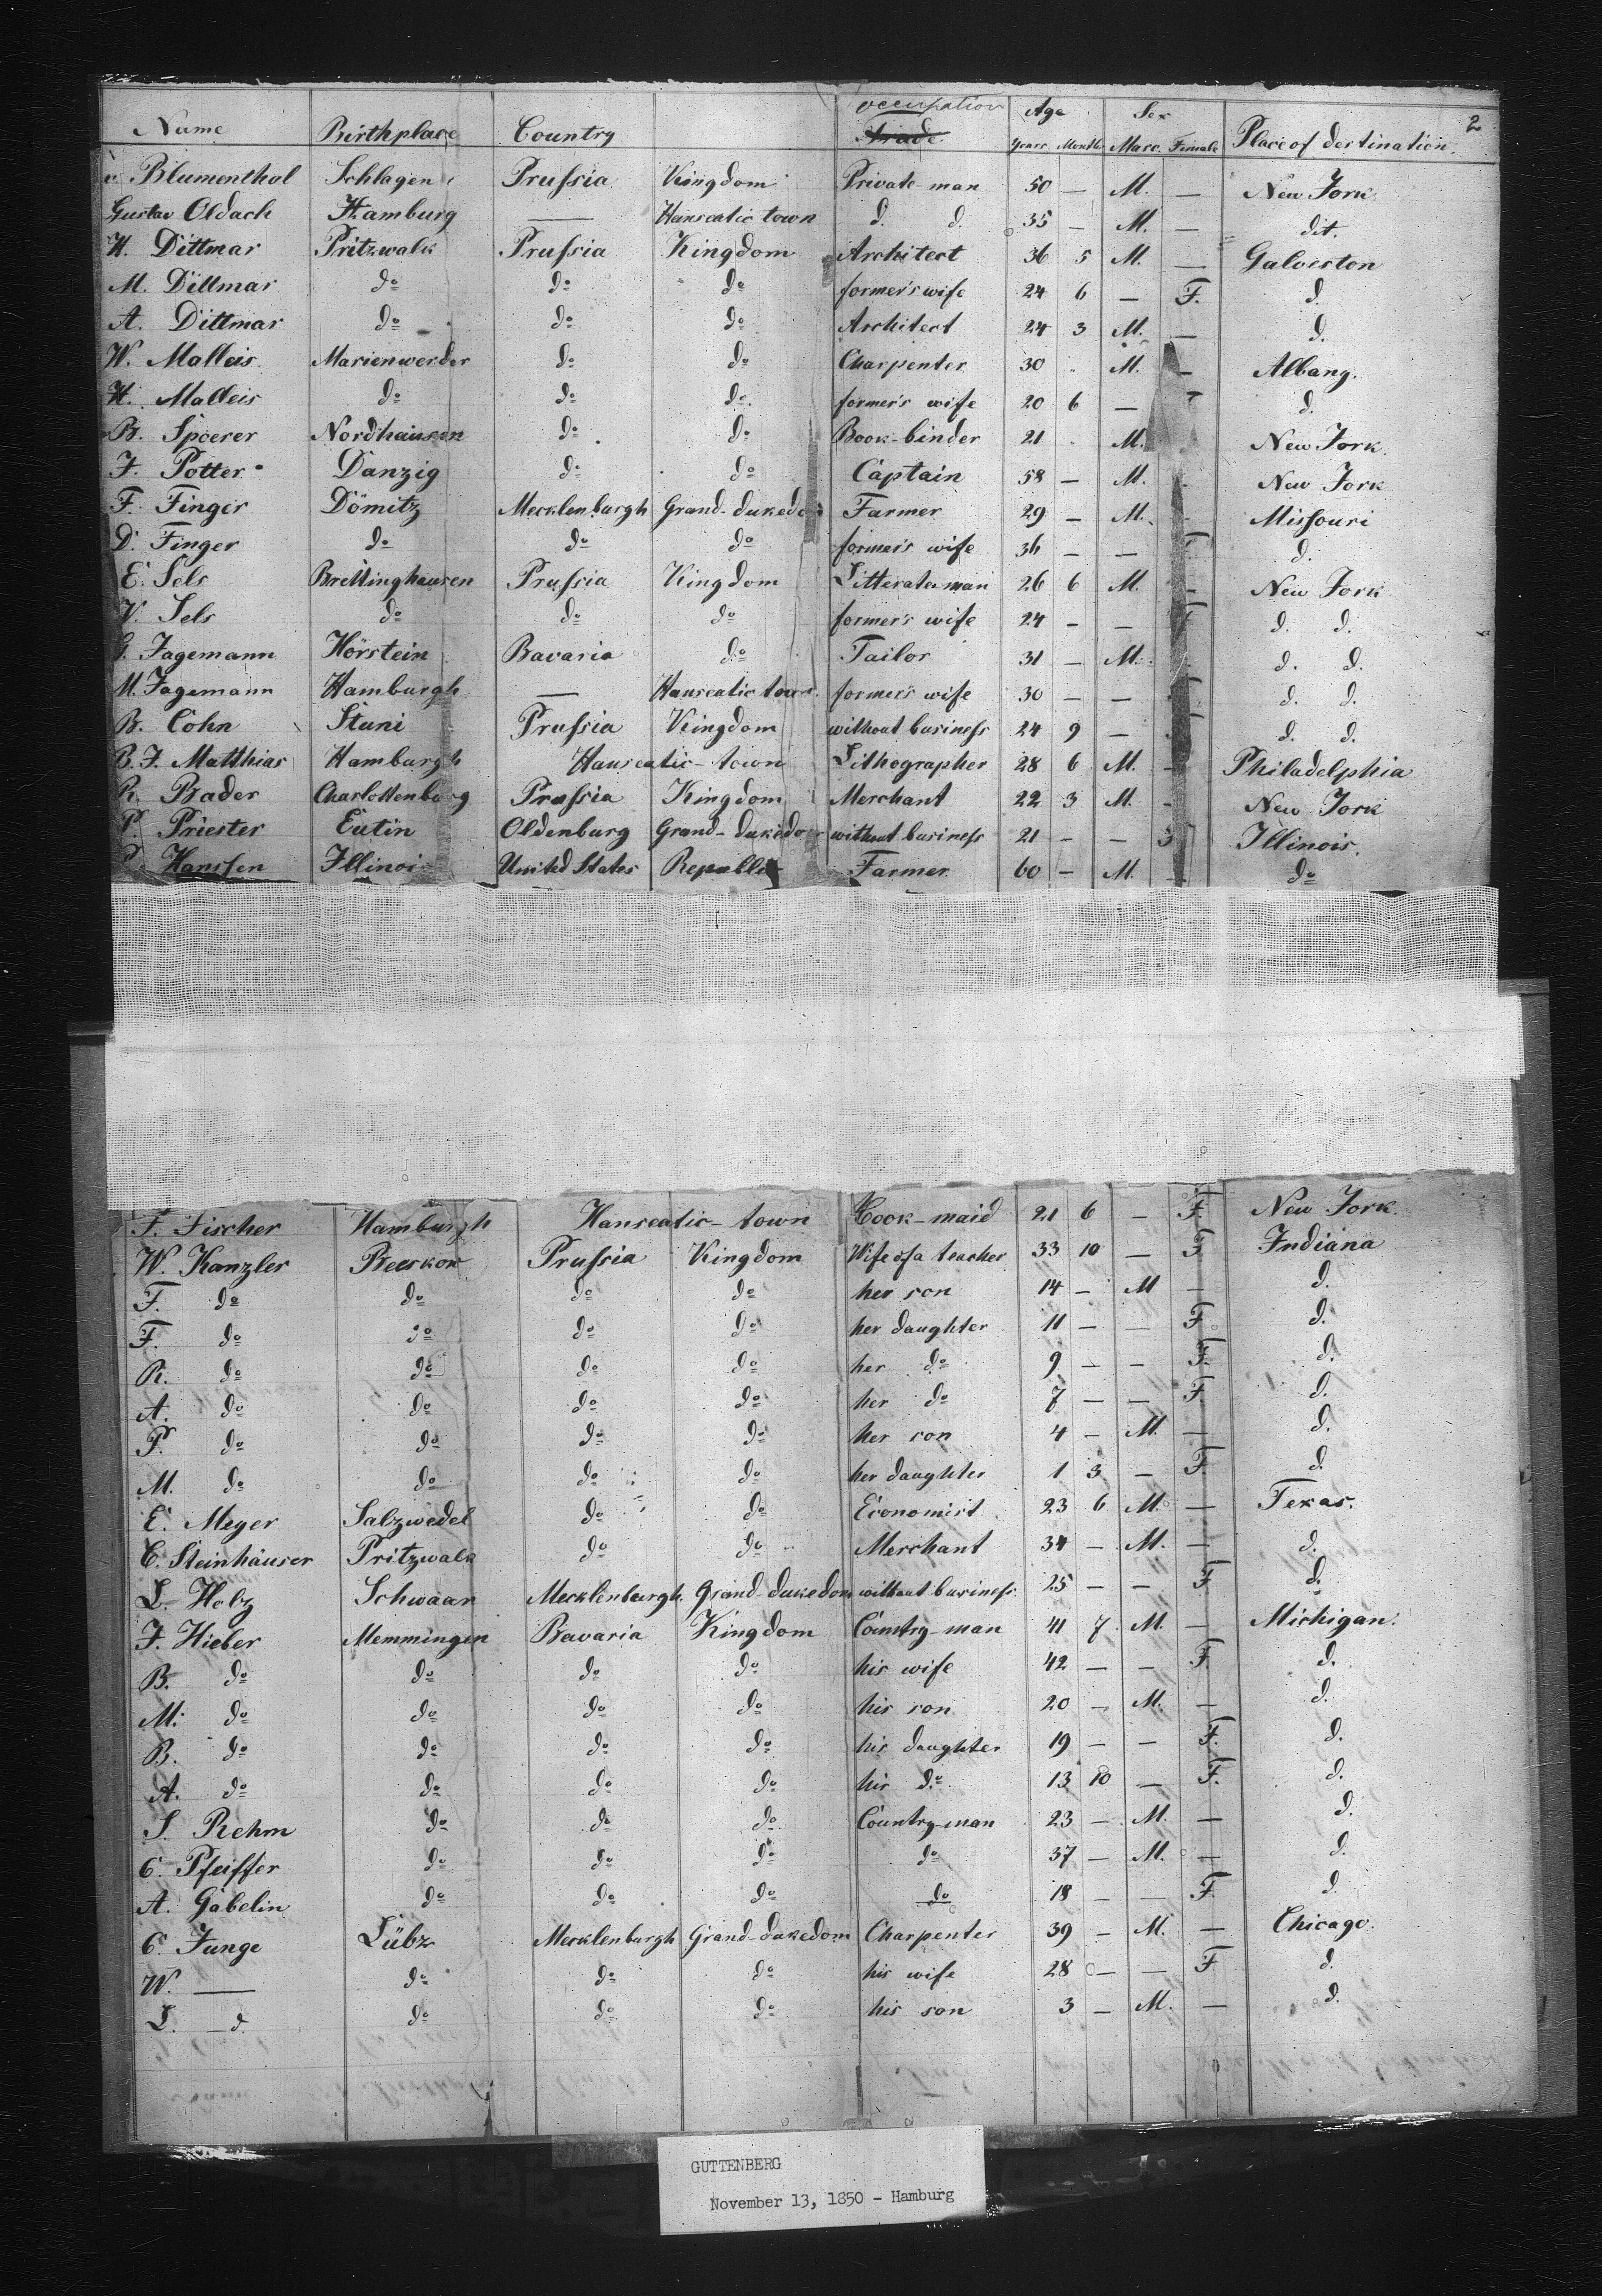 2
Name Birthplace Country occupation Trade Age Years Month Sex Masc. Female Place of destination.
v Blumenthal Schlagen Prussia Kingdom Private-man 50 — M. — New York
Gustav Oldach Hamburg — Hanseatic town d. d. 35 — M. — dit.
H. Dittmar Pritzwalk Prussia Kingdom Architect 36 5 M. — Galveston
M. Dittmar do do do former's wife 24 6 — F. d.
A. Dittmar do do do Architect 24 3 M. — d.
W. Malleis Marienwerder do do Charpenter 30 M. — Albany.
H. Malleis do do do former's wife 20 6 — d.
B. Spoerer Nordhausen do do Book-binder 21 M. New York
F. Potter Danzig do do Captain 58 — M. New York
F. Finger Dömitz Mecklenburgh Grand-dukedom Farmer 29 — M. Missouri
D. Finger do do do former's wife 36 — — d.
E. Sels Brettinghausen Prussia Kingdom Litterate man 26 6 M. New York
V. Sels do do do former's wife 24 — — d. d.
Jagemann Hörstein Bavaria do Tailor 31 — M. d. d.
M. Jagemann Hamburgh — Hanseatic town former's wife 30 — — d. d.
B. Cohn Stuni Prussia Kingdom without business 24 9 — d. d.
B. F. Matthias Hamburgh Hanseatic-town Lithographer 28 6 M. Philadelphia
R. Bader Charlottenburg Prussia Kingdom Merchant 22 3 M. New York
P. Priester Eutin Oldenburg Grand-dukedom without business 21 — — F Illinois.
Hanssen Illinois United States Republic Farmer 60 — M. — do
F. Fischer Hamburgh Hanseatic-town Cook-maid 21 6 — F. New York.
W. Kanzler Beeskow Prussia Kingdom Wife of a teacher 33 10 — F Indiana
F. do do do do her son 14 — M — d.
F. do do do do her daughter 11 — — F d.
R. do do do do her do 9 — — F. d.
A. do do do do her do 7 — — F. d.
P. do do do do her son 4 — M. — d.
M. do do do do her daughter 1 3 — F. d.
E. Meyer Salzwedel do do Economist 23 6 M. — Texas.
C. Steinhäuser Pritzwalk do do Merchant 34 — M. — d.
L. Holz Schwaan Mecklenburgh Grand-dukedom without business 25 — — F d.
F. Hieber Memmingen Bavaria Kingdom Country-man 41 7 M. — Michigan.
B. do do do do his wife 42 — — F. d.
M. do do do do his son 20 — M. — d.
B. do do do do his daughter 19 — — F. d.
A. do do do do his do 13 10 — F. d.
S. Rehm do do do Country-man 23 — M. — d.
C. Pfeiffer do do do do 37 — M. — d.
A. Gäbelin do do do do 18 — — F. d.
C. Junge Lübz Mecklenburgh Grand-dukedom Charpenter 39 — M. — Chicago.
W. — do do do his wife 28 — — F d.
L. — d. do do do his son 3 — M. — d.
GUTTENBERG
November 13, 1850 - Hamburg